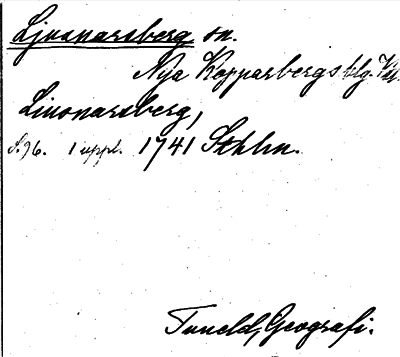 Ljusnarsberg sn.
Nya Kopparbergs blg. Vstm.
Liusnarsberg,
S. 96. 1 uppl. 1741 Sthlm.
Tuneld, Geografi.